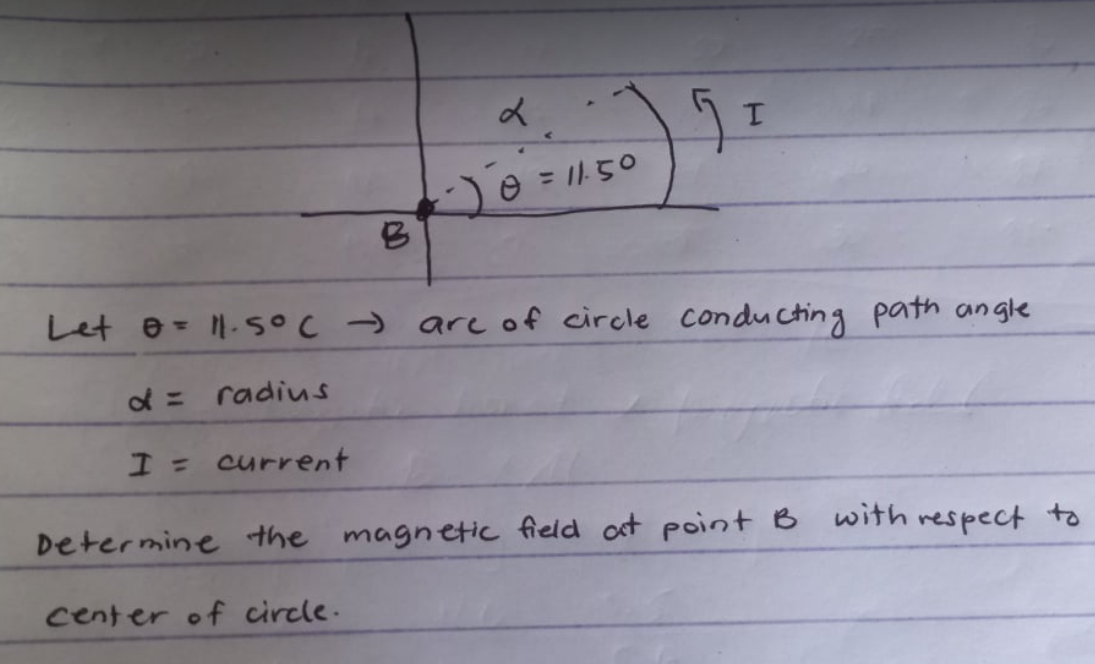 α
I
θ = 11.5°
B
Let θ = 11.5°C → arc of circle conducting path angle
α = radius
I = current
Determine the magnetic field at point B with respect to
center of circle.